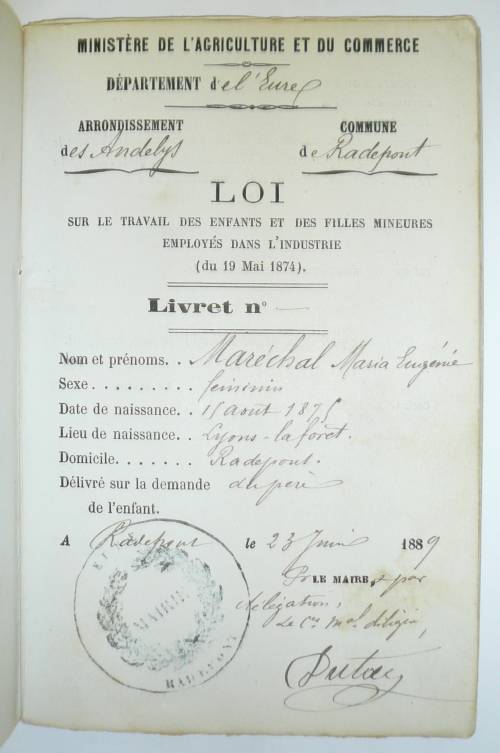 MINISTÈRE DE L'AGRICULTURE ET DU COMMERCE
DÉPARTEMENT de l'Eure
ARRONDISSEMENT
des Andelys
COMMUNE
de Radepont
LOI
SUR LE TRAVAIL DES ENFANTS ET DES FILLES MINEURES
EMPLOYÉS DANS L'INDUSTRIE
(du 19 Mai 1874).
Livret no —
Nom et prénoms. . Maréchal Maria Eugénie
Sexe . . . . . . . . . féminin
Date de naissance. . 15 août 1875
Lieu de naissance. . Lyons-la forêt.
Domicile. . . . . . . Radepont.
Délivré sur la demande du père
de l'enfant.
A Radepont le 23 Juin 1889
Pr LE MAIRE, & par
délégation,
Le Cer Mal
MAIRIE
RADEPONT